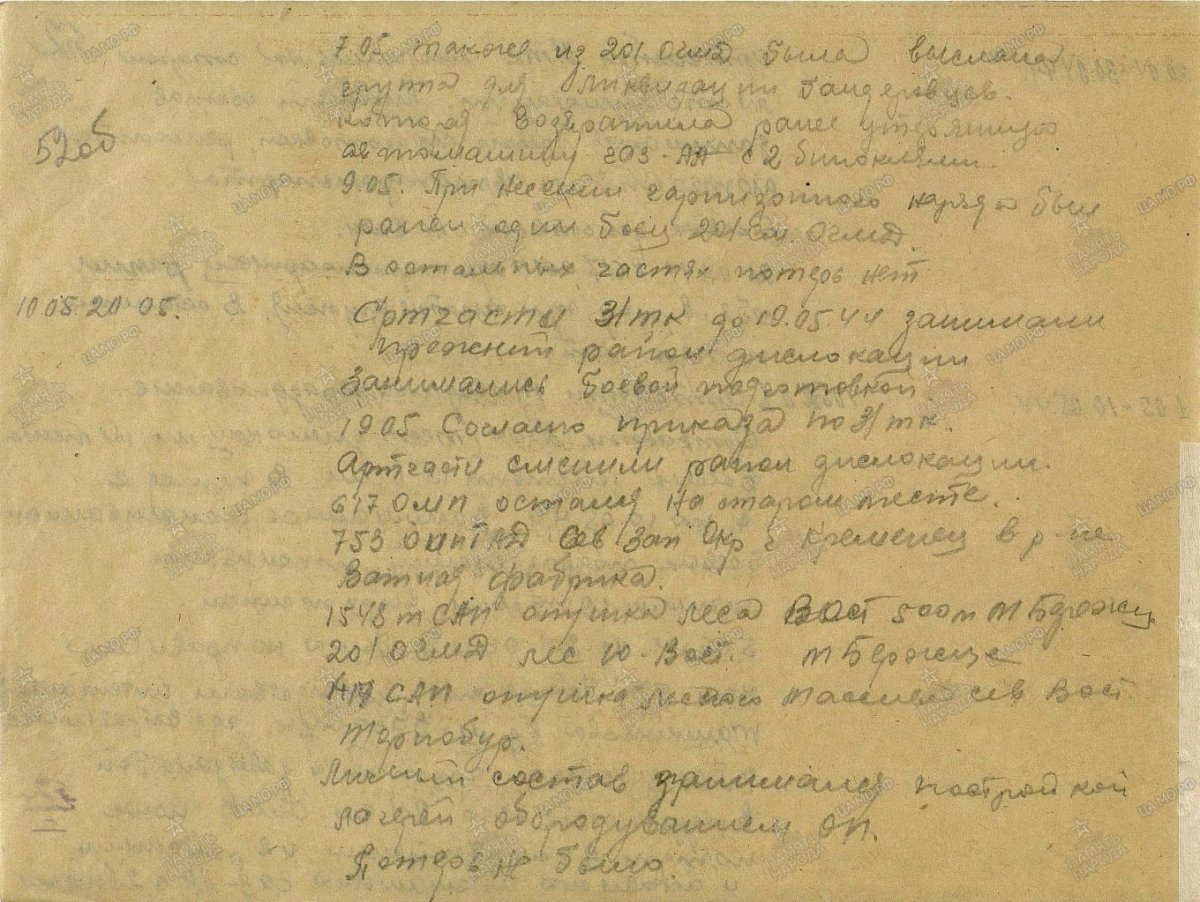 7.05 также из 201 огмд была выслана
группа для ликвидации бандеровцев.
которая возвратила ранее утерянную
автомашину ГАЗ-АА с 2 биноклями.
52об
9.05. При несении гарнизонного наряда был
ранен один боец 201 ем огмд.
В остальных частях потерь нет
10 05-20-05.
Артчасти 31 тк до 19.05 44 занимали
прежний район дислокации
Занимались боевой подготовкой.
19 05 Согласно приказа по 31 тк.
Артчасти сменили район дислокации.
617 ОМП остался на старом месте.
753 ОИПТАД Сев Зап Окр г Кременец в р-не
Ватная фабрика.
1548 т САП опушка леса Вост 500 м М Бережцы
201 огмд лес Ю-Вост. м Бережце
САП опушка лесного массива сев Вост
Личный состав занимался постройкой
лагерей оборудуванием ОП.
Потерь не было.